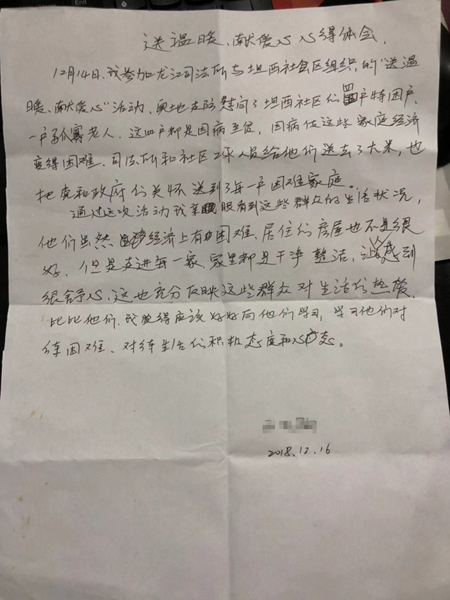 送温暖、献爱心心得体会
12月14日、我参加龙江司法所与坦西社区组织的“送温
暖、献爱心”活动、实地走访慰问了坦西社区的四户特困户、
一户孤寡老人、这四户都是因病至贫、因病使这些家庭经济
变得困难、司法所和社区工作人员给他们送去了大米、也
把党和政府的关怀送到了每一户困难家庭。
通过这次活动我亲眼看到这些群众的生活状况，
他们虽然经济上有困难、居住的房屋也不是很
好、但是走进每一家、家里都是干净整洁、让我感到
很舒心、这也充分反映这些群众对生活的热爱、
比比他们、我觉得应该好好向他们学习、学习他们对
待困难、对待生活的积极态度和心态。
2018.12.16